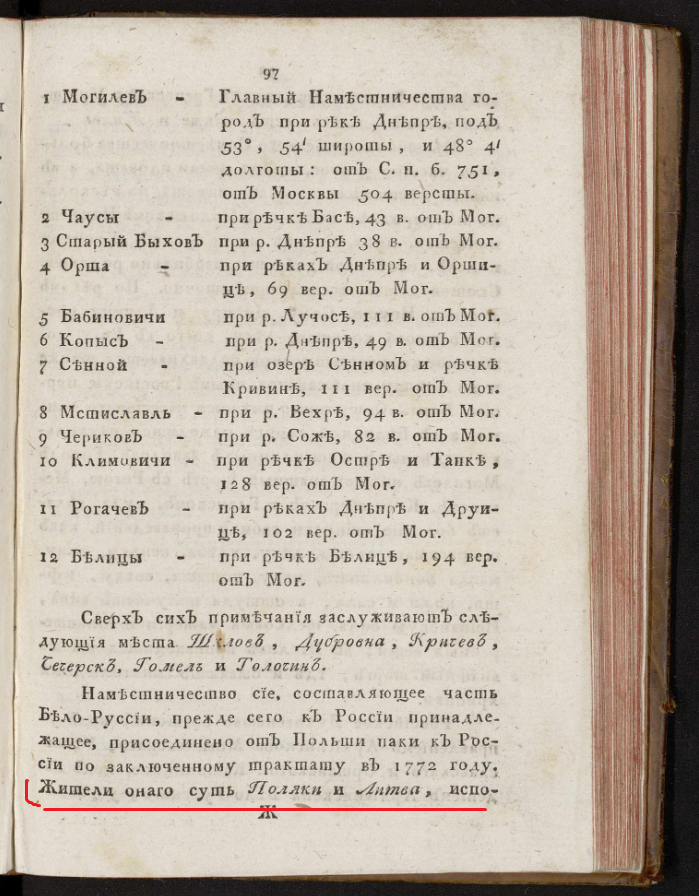 97
1 Могилевъ - Главный Намѣстничества го-
родъ при рѣкѣ Днѣпрѣ, подъ
53°, 54′ широты, и 48° 4′
долготы: отъ С. п. б. 751,
отъ Москвы 504 версты.
2 Чаусы - при рѣчкѣ Басѣ, 43 в. отъ Мог.
3 Старый Быховъ при р. Днѣпрѣ 38 в. отъ Мог.
4 Орша - при рѣкахъ Днѣпрѣ и Орши-
цѣ, 69 вер. отъ Мог.
5 Бабиновичи при р. Лучосѣ, 111 в. отъ Мог.
6 Копысъ - при р. Днѣпрѣ, 49 в. отъ Мог.
7 Сѣнной - при озерѣ Сѣнномъ и рѣчкѣ
Кривинѣ, 111 вер. отъ Мог.
8 Мстиславль - при р. Вехрѣ, 94 в. отъ Мог.
9 Чериковъ - при р. Сожѣ, 82 в. отъ Мог.
10 Климовичи - при рѣчкѣ Острѣ и Танкѣ,
128 вер. отъ Мог.
11 Рогачевъ - при рѣкахъ Днѣпрѣ и Друи-
цѣ, 102 вер. отъ Мог.
12 Бѣлицы - при рѣчкѣ Бѣлицѣ, 194 вер.
отъ Мог.
Сверхъ сихъ примѣчанїя заслуживаютъ слѣ-
дующїя мѣста Шкловъ, Дубровна, Кричевъ,
Чечерскъ, Гомель и Толочинъ.
Намѣстничество сїе, составляющее часть
Бѣло-Руссїи, прежде сего къ Россїи принадле-
жащее, присоединено отъ Польши паки къ Рос-
сїи по заключенному трактату въ 1772 году.
Жители онаго суть Поляки и Литва, испо-
Ж